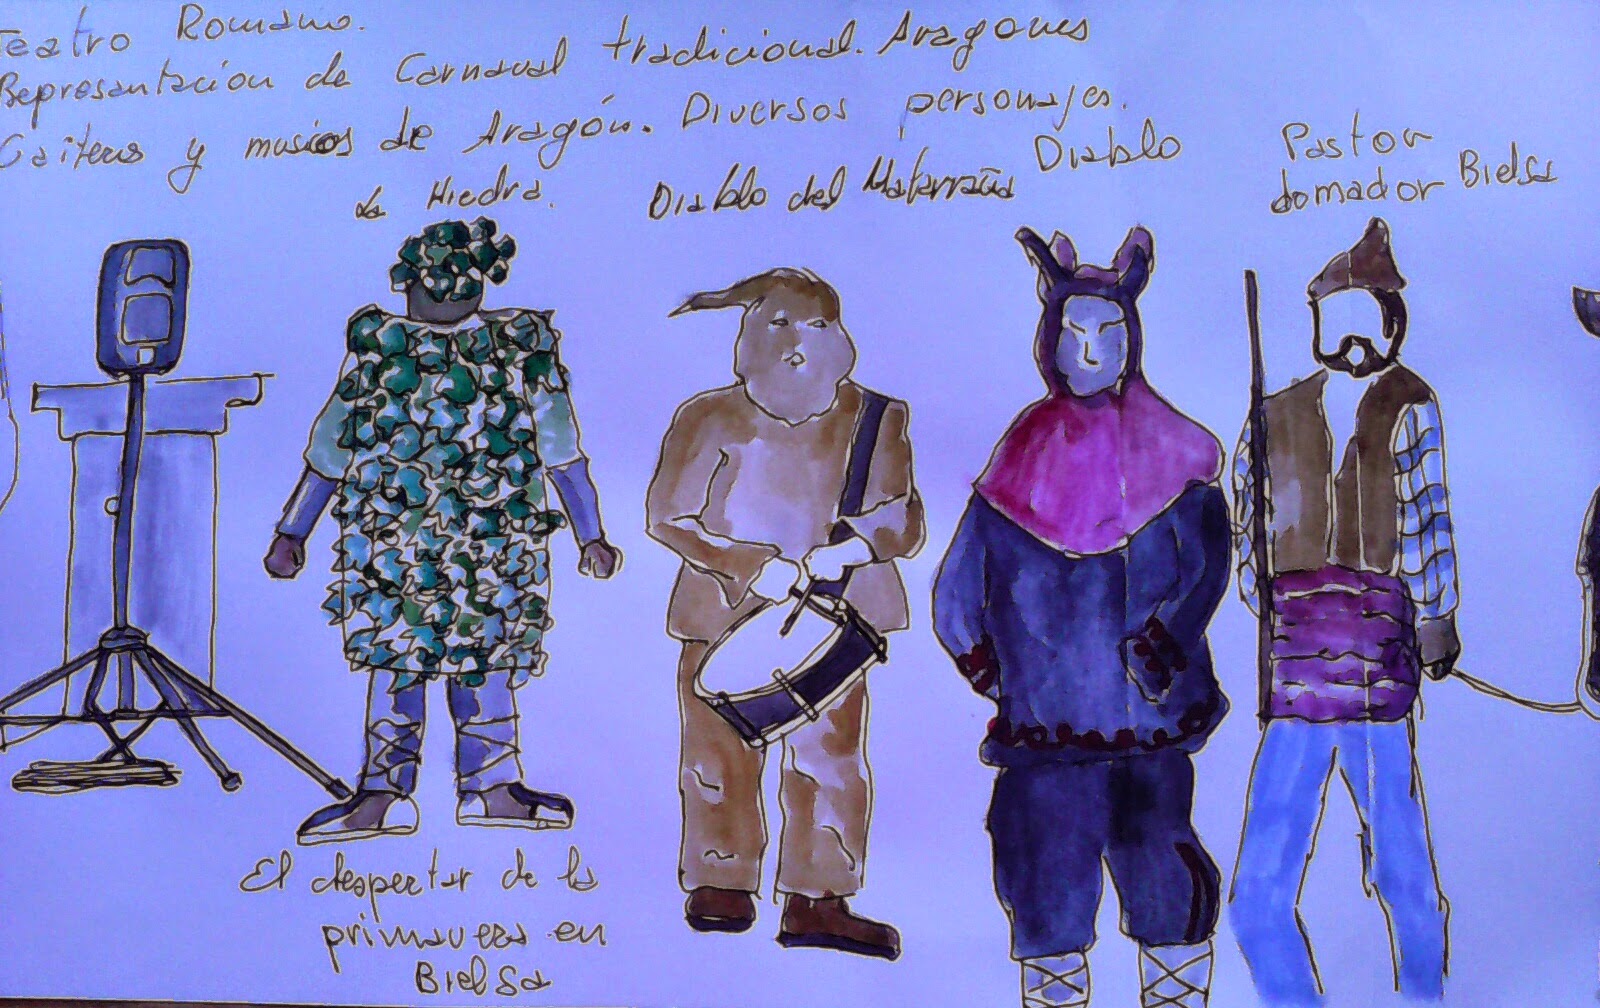 Teatro Romano.
Representación de Carnaval tradicional. Aragones
Gaiteros y musicos de Aragón. Diversos personajes.
La Hiedra.
Diablo del Matarraña
Diablo
Pastor
domador Bielsa
El despertar de la
primavera en
Bielsa